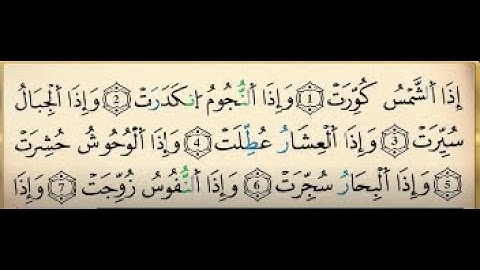 إِذَا ٱلشَّمْسُ كُوِّرَتْ ۝1 وَإِذَا ٱلنُّجُومُ ٱنكَدَرَتْ ۝2 وَإِذَا ٱلْجِبَالُ
سُيِّرَتْ ۝3 وَإِذَا ٱلْعِشَارُ عُطِّلَتْ ۝4 وَإِذَا ٱلْوُحُوشُ حُشِرَتْ
۝5 وَإِذَا ٱلْبِحَارُ سُجِّرَتْ ۝6 وَإِذَا ٱلنُّفُوسُ زُوِّجَتْ ۝7 وَإِذَا